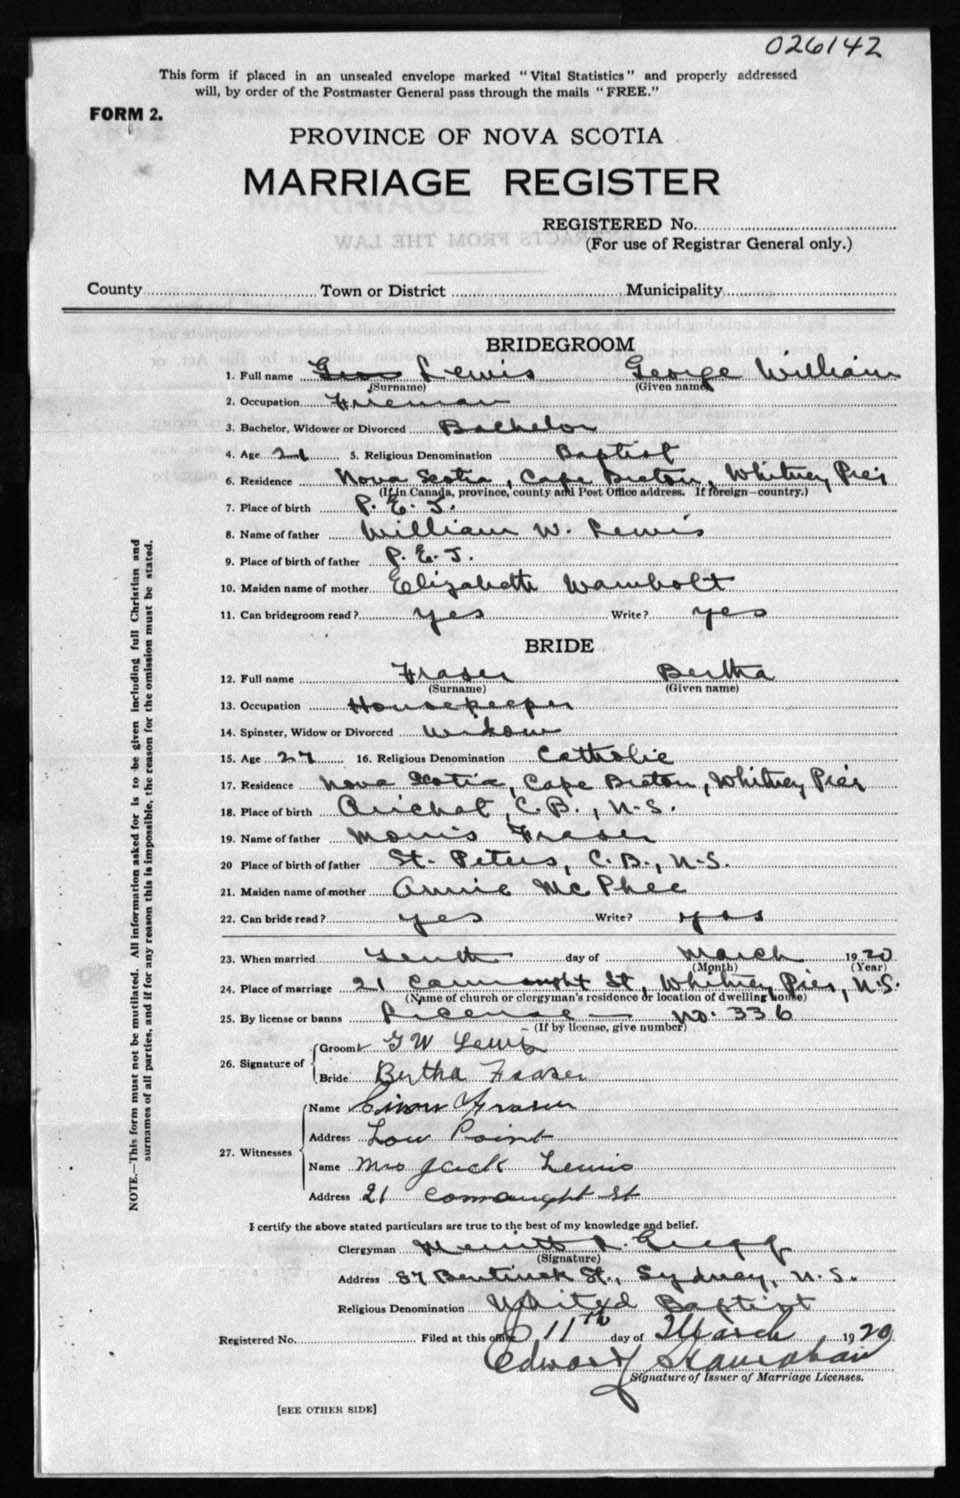 026142
This form if placed in an unsealed envelope marked "Vital Statistics" and properly addressed
will, by order of the Postmaster General pass through the mails "FREE."
FORM 2.
PROVINCE OF NOVA SCOTIA
MARRIAGE REGISTER
REGISTERED No.
(For use of Registrar General only.)
County Town or District Municipality
BRIDEGROOM
1. Full name Geo Lewis George William
(Surname) (Given name)
2. Occupation Fireman
3. Bachelor, Widower or Divorced Bachelor
4. Age 5. Religious Denomination Baptist
6. Residence Nova Scotia, Cape Breton, Whitney Pier
(If in Canada, province, county and Post Office address. If foreign—country.)
7. Place of birth P. E. I.
8. Name of father William W. Lewis
9. Place of birth of father P. E. I.
10. Maiden name of mother Elizabeth Wambolt
11. Can bridegroom read? yes Write? yes
BRIDE
12. Full name Fraser Bertha
(Surname) (Given name)
13. Occupation Housekeeper
14. Spinster, Widow or Divorced Widow
15. Age 27 16. Religious Denomination Catholic
17. Residence Nova Scotia, Cape Breton, Whitney Pier
18. Place of birth Arichat, C.B., N.S.
19. Name of father Morris Fraser
20 Place of birth of father St. Peters, C.B., N.S.
21. Maiden name of mother Annie McPhee
22. Can bride read? yes Write? yes
23. When married Tenth day of March 1920
(Month) (Year)
24. Place of marriage 21 Connaught St, Whitney Pier, N.S.
(Name of church or clergyman's residence or location of dwelling house)
25. By license or banns License — No. 336
(If by license, give number)
26. Signature of Groom G W Lewis
Bride Bertha Fraser
27. Witnesses
Name Simon Fraser
Address Low Point
Name Mrs Jack Lewis
Address 21 Connaught St
I certify the above stated particulars are true to the best of my knowledge and belief.
Clergyman Merritt L. Gregg
(Signature)
Address 87 Bentinck St., Sydney, N.S.
Religious Denomination United Baptist
Registered No. Filed at this office 11th day of March 1920
Edward
Signature of Issuer of Marriage Licenses.
[SEE OTHER SIDE]
NOTE.—This form must not be mutilated. All information asked for is to be given including full Christian and
surnames of all parties, and if for any reason this is impossible, the reason for the omission must be stated.